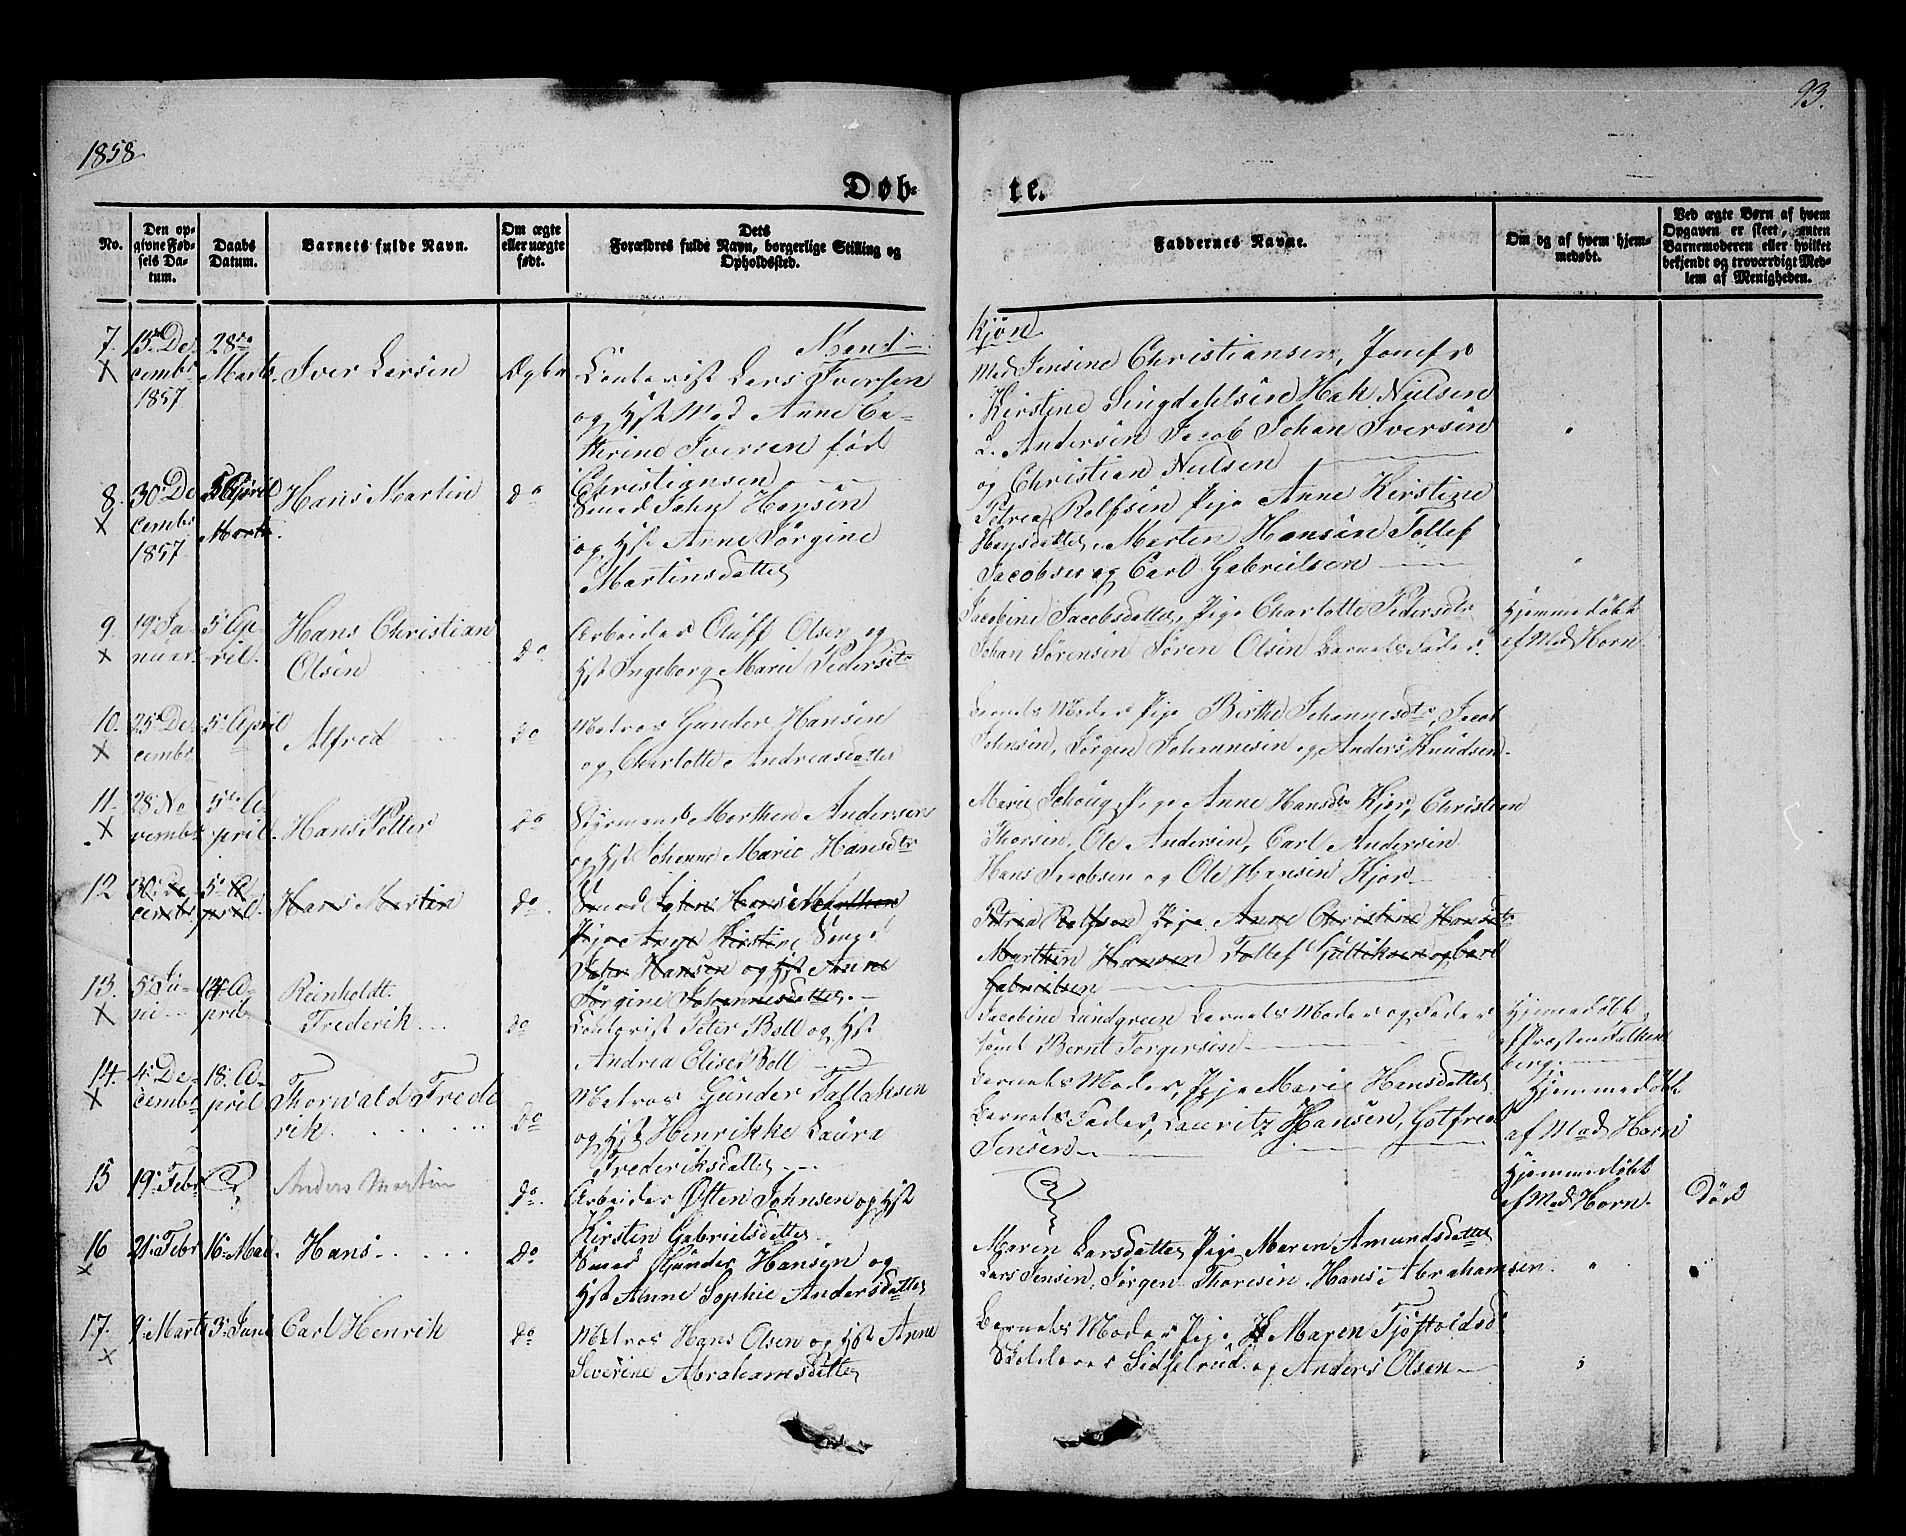 1858
93.
Døb-
te.
No.
Den op-
givne Fød-
sels Da-
tum.
Daabs
Datum.
Barnets fulde Navn.
Om ægte
eller uægte
født.
Dets
Forældres fulde Navn, borgerlige Stilling og
Opholdssted.
Faddernes Navne.
Om og af hvem hjem-
medøbt.
Ved ægte Børn af hvem
Opgaven er skeet, enten
Barnemoderen eller hvilket
bekjendt og troværdigt Med-
lem af Menigheden.
Mand-
Kjøn
7.
X
15 De-
cembr
1857
28de
Marts.
Iver Larsen
Ægte
Contorist Lars Iversen
og Hst Mad Anne Ca-
thrine Iversen fød
Christiansen
Mad Jensine Christiansen, Jomfr
Kirstine Lingdahlsen Hak Nielsen
L. Andersen Jacob Johan Iversen
og Christian Nielsen
8.
X
30 De-
cembr
1857
5 April
Marts.
Hans Martin
do
Smed John Hansen
og Hst Anne Jørgine
Martinsdatter
Petrea Rolfsen Pige Anne Kirstine
Hansdatter, Morten Hansen Tollef
Jacobsen og Carl Gabrielsen
9.
X
19 Ja-
nuar
5 Ap-
ril.
Hans Christian
Olsen
do
Arbeider Oluff Olsen og
Hst Ingeborg Marie Pedersdtr
Jacobine Jacobsdatter, Pige Charlotte Pedersdtr
Johan Sørensen Søren Olsen Barnets Fader
Hjemmedøbt
af Mad Horn
10.
X
25 De-
cembr
5 April
Alfred
do
Matros Gunder Hansen
og Charlotte Andreasdatter
Barnets Moder Pige Birthe Johannesdtr, Jacob
Johnsen, Jørgen Johannesen og Anders Knudsen.
11.
X
28 No-
vembr
5te A-
pril.
Hans Petter
do
Styrmand Morthen Andersen
og Hst Johanne Marie Hansdtr
Marie Schoug, Pige Anne Hansdtr Kjær, Christian
Thorsen, Ole Andersen, Carl Andersen
Hans Jacobsen og Ole Hansen Kjær
12
30 De-
cembr
5 A-
pril.
Hans Martin
do.
Smed John Hansen
Pige Kirstine
John Hansen og Hst Anne
Jørgine Johannesdatter.
Petrea Rolfsen Pige Anne Christine Hansdtr
Marthin Hansen Tollef og Carl
Gabrielsen
13.
X
5 Ju-
ni
14 A-
pril
Reinholdt
Frederik
do
Contorist Peter Boll og Hst
Andrea Elise Boll
Jacobine Lundgreen Barnets Moder og Fader
samt Bernt Torgersen
Hjemmedøbt
af Præsten Falken-
berg.
14.
X
4 De-
cembr
18 A-
pril
Thorwald Frede-
rik
do
Matros Gunder Tallaksen
og Hst Henrikke Laura
Frederiksdatter
Barnets Moder, Pige Marie Hansdatter
Barnets Fader, Lauritz Hansen, Gotfred
Jensen
Hjemmedøbt
af Mad Horn
15
19 Febr
Anders Martin
do.
Arbeider Østen Johnsen og Hst
Kirsten Gabrielsdatter
Hjemmedøbt
af Mad Horn.
Død
16
X
21 Febr
16 Mai
Hans
do
Smed Gunder Hansen og
Hst Anne Sophie Andersdatter
Maren Larsdatter, Pige Maren Amundsdatter
Lars Jensen, Jørgen Thoresen, Hans Abrahamsen.
17.
X
9 Marts
3 Juni
Carl Henrik
do
Matros Hans Olsen og Hst Anne
Severine Abrahamsdatter
Barnets Moder Pige Maren Tjøstolsd
Skolelærer Sidselrud og Anders Olsen